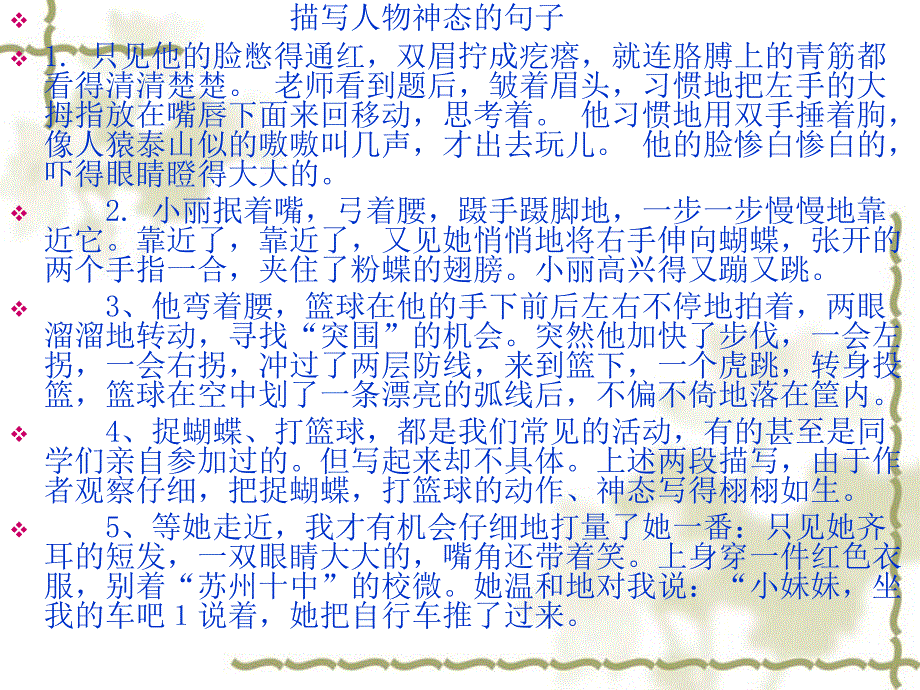 描写人物神态的句子
1. 只见他的脸憋得通红，双眉拧成疙瘩，就连胳膊上的青筋都
看得清清楚楚。 老师看到题后，皱着眉头，习惯地把左手的大
拇指放在嘴唇下面来回移动，思考着。 他习惯地用双手捶着胸，
像人猿泰山似的嗷嗷叫几声，才出去玩儿。 他的脸惨白惨白的，
吓得眼睛瞪得大大的。
2. 小丽抿着嘴，弓着腰，蹑手蹑脚地，一步一步慢慢地靠
近它。靠近了，靠近了，又见她悄悄地将右手伸向蝴蝶，张开的
两个手指一合，夹住了粉蝶的翅膀。小丽高兴得又蹦又跳。
3、他弯着腰，篮球在他的手下前后左右不停地拍着，两眼
溜溜地转动，寻找“突围”的机会。突然他加快了步伐，一会左
拐，一会右拐，冲过了两层防线，来到篮下，一个虎跳，转身投
篮，篮球在空中划了一条漂亮的弧线后，不偏不倚地落在筐内。
4、捉蝴蝶、打篮球，都是我们常见的活动，有的甚至是同
学们亲自参加过的。但写起来却不具体。上述两段描写，由于作
者观察仔细，把捉蝴蝶，打篮球的动作、神态写得栩栩如生。
5、等她走近，我才有机会仔细地打量了她一番：只见她齐
耳的短发，一双眼睛大大的，嘴角还带着笑。上身穿一件红色衣
服，别着“苏州十中”的校微。她温和地对我说：“小妹妹，坐
我的车吧1说着，她把自行车推了过来。